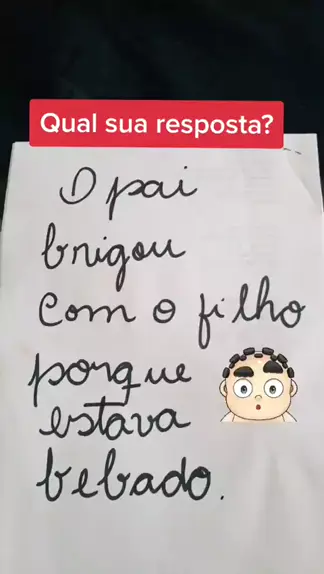 Qual sua resposta?
O pai
brigou
com o filho
porque
estava
bebado.